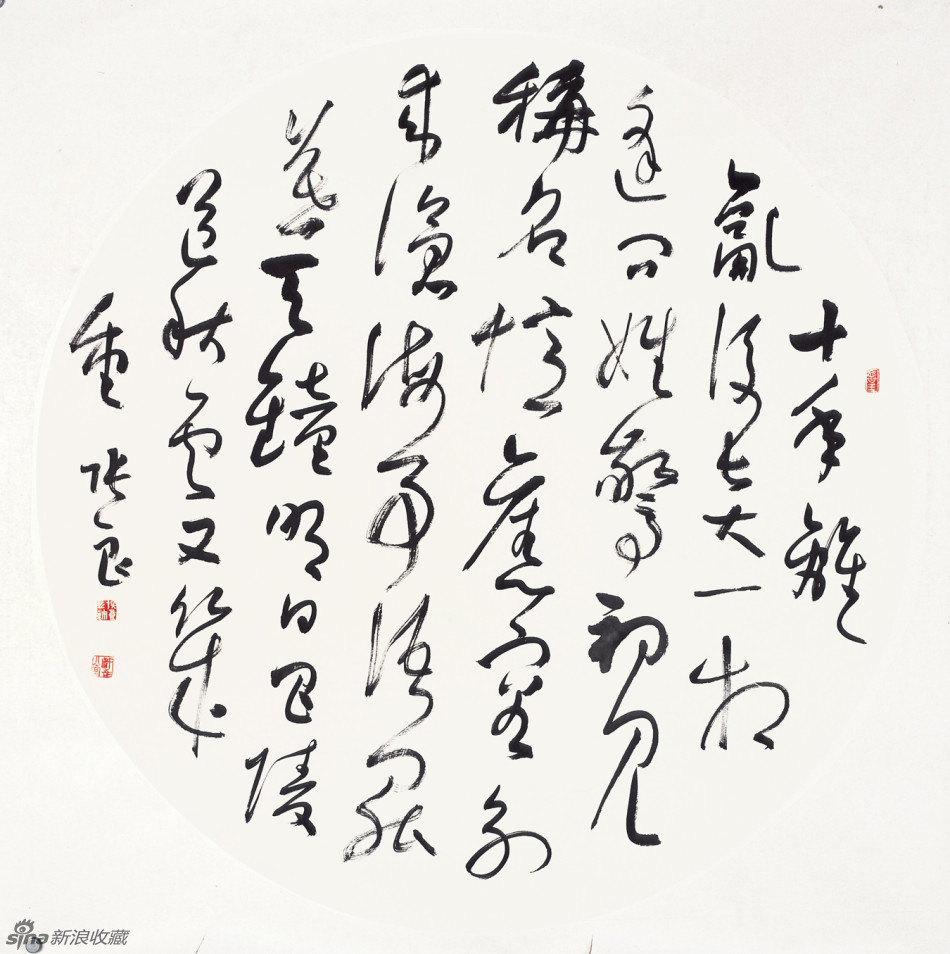 十年離
亂後長大一相
逢問姓驚初見
稱名憶舊容別
來滄海事語罷
暮天鐘明日巴陵
道秋雲又幾
重 張良
sina新浪收藏